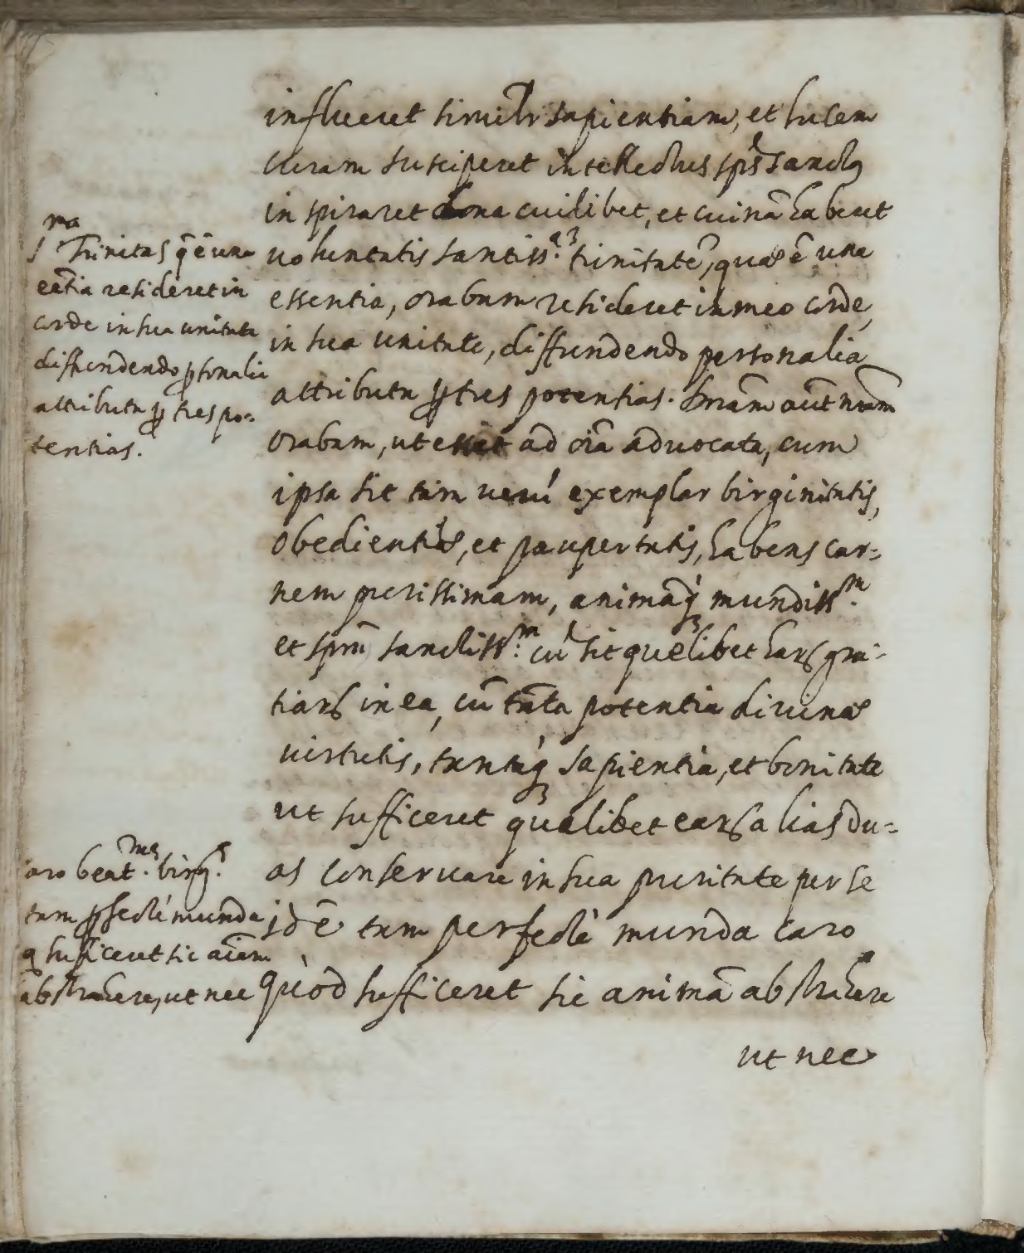 influeret simil.r sapientiam, et lucem
veram susciperet intellectus sps̃ sanctus
inspiraret dona cuilibet, et cuinã haberet
voluntatis santiss.ę trinitatẽ, quæ ẽ una
essentia, orabam resideret in meo corde,
in sua unitate, diffundendo personalia
attributa ꝑ tres potentias. autem nr̃am
orabam, ut esset ad oĩa advocata, cum
ipsa sit tam verũ exemplar birginitatis,
obedientiæ, et paupertatis, habens car=
nem purissimam, animaq́ mundiss.m
et spm̃ sanctiss.m cũ sit quęlibet harꝝ gra=
tiarꝝ in ea, cũ tãta potentia divinæ
virtutis, tantaq́ sapientia, et bonitate
ut sufficeret quęlibet earꝝ alias du=
as conservare in sua puritate per se
id ẽ tam perfectè munda caro
quòd sufficeret sic animã abstrahere
ut nec
S.ma Trinitas q̃ ẽ una
eẽtia resideret in
corde in sua unitate
diffundendo ꝑsonalia
attributa ꝑ tres po=
tentias.
caro beat.mę birg.s
tam ꝑfectè munda
q sufficeret sic aĩam
abstrahere, ut nec